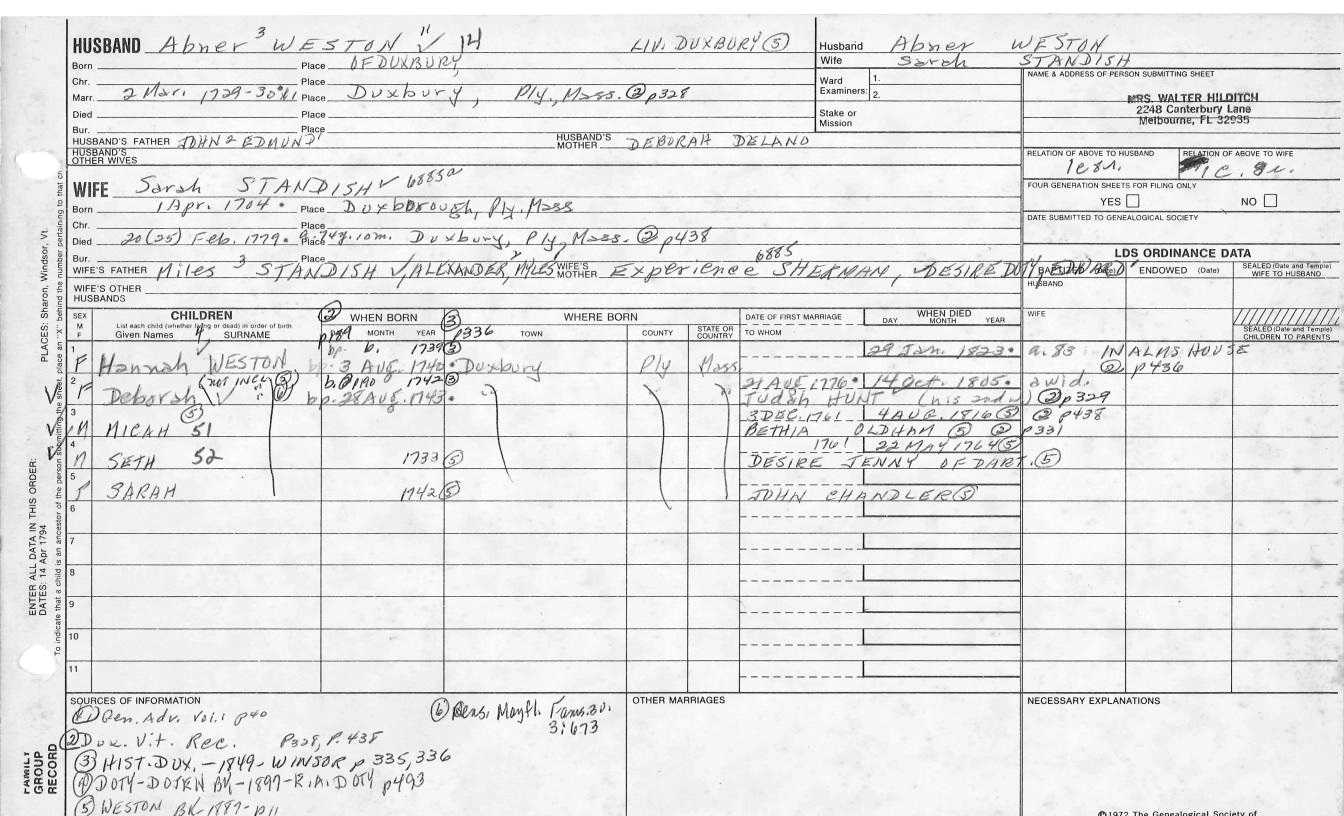 HUSBAND Abner 3 WESTON 11 ✓ 14 LIV. DUXBURY (5)
Born Place OF DUXBURY
Chr. Place
Marr. 2 Mar. 1729-30 Place Duxbury, Ply., Mass. (2) p328
Died Place
Bur. Place
HUSBAND'S FATHER JOHN 2 EDMUND 1 HUSBAND'S MOTHER DEBORAH DELANO
HUSBAND'S OTHER WIVES
WIFE Sarah STANDISH ✓ 6885a
Born 1 Apr. 1704. Place Duxborough, Ply. Mass
Chr. Place
Died 20(25) Feb. 1779. Place Duxbury, Ply., Mass. (2) p438
Bur. Place
6885
WIFE'S FATHER Miles 3 STANDISH ✓, ALEXANDER, MYLES WIFE'S MOTHER Experience SHERMAN, ✓ DESIRE DOTY, EDWARD
WIFE'S OTHER HUSBANDS
Husband Abner WESTON
Wife Sarah STANDISH
Ward Examiners: 1.
2.
Stake or Mission
NAME & ADDRESS OF PERSON SUBMITTING SHEET
MRS. WALTER HILDITCH
2248 Canterbury Lane
Melbourne, FL 32935
RELATION OF ABOVE TO HUSBAND RELATION OF ABOVE TO WIFE
FOUR GENERATION SHEETS FOR FILING ONLY
YES NO
DATE SUBMITTED TO GENEALOGICAL SOCIETY
LDS ORDINANCE DATA
BAPTIZED (Date) ENDOWED (Date) SEALED (Date and Temple) WIFE TO HUSBAND
HUSBAND
WIFE
SEALED (Date and Temple) CHILDREN TO PARENTS
SEX M F
CHILDREN
List each child (whether living or dead) in order of birth
Given Names 4 SURNAME
(2) p189 WHEN BORN (3) p336
DAY MONTH YEAR
WHERE BORN
TOWN COUNTY STATE OR COUNTRY
DATE OF FIRST MARRIAGE
TO WHOM
WHEN DIED
DAY MONTH YEAR
1 bp. b. 1739 (3) 29 Jan. 1823. a. 83 IN ALMS HOUSE
F Hannah WESTON bp. 3 AUG. 1740. Duxbury Ply Mass (2) p436
2 (NOT INCL (3) " (6) b. (2) p190 1742 (3) 21 AUG 1776. 14 Oct. 1805. a wid.
F Deborah ✓ bp. 28 AUG. 1743. " JUDAH HUNT (his 2nd w) (2) p329
3 (5) 3 DEC. 1761 4 AUG. 1816 (5) (2) p438
M MICAH 51 BETHIA OLDHAM (5) (2) p331
4 1761 22 MAY 1764 (5)
M SETH 52 1733 (5) DESIRE JENNY OF DART. (5)
5
F SARAH 1742 (5) JOHN CHANDLER (5)
6
7
8
9
10
11
SOURCES OF INFORMATION
(1) Gen. Adv. Vol. 1 p40
(2) Dux. Vit. Rec. P328, P. 438
(3) HIST. DUX. - 1849 - WINSOR p 335, 336
(4) DOTY-DOTEN BK - 1897 - R.A. DOTY p493
(5) WESTON BK - 1887 - p11
(6) Gens. Mayfl. Fams.
3:673
OTHER MARRIAGES
NECESSARY EXPLANATIONS
©1972 The Genealogical Society of
PLACES: Sharon, Windsor, Vt.
ENTER ALL DATA IN THIS ORDER:
DATES: 14 Apr 1794
To indicate that a child is an ancestor of the person submitting the sheet, place an "X" behind the number pertaining to that ch
FAMILY GROUP RECORD